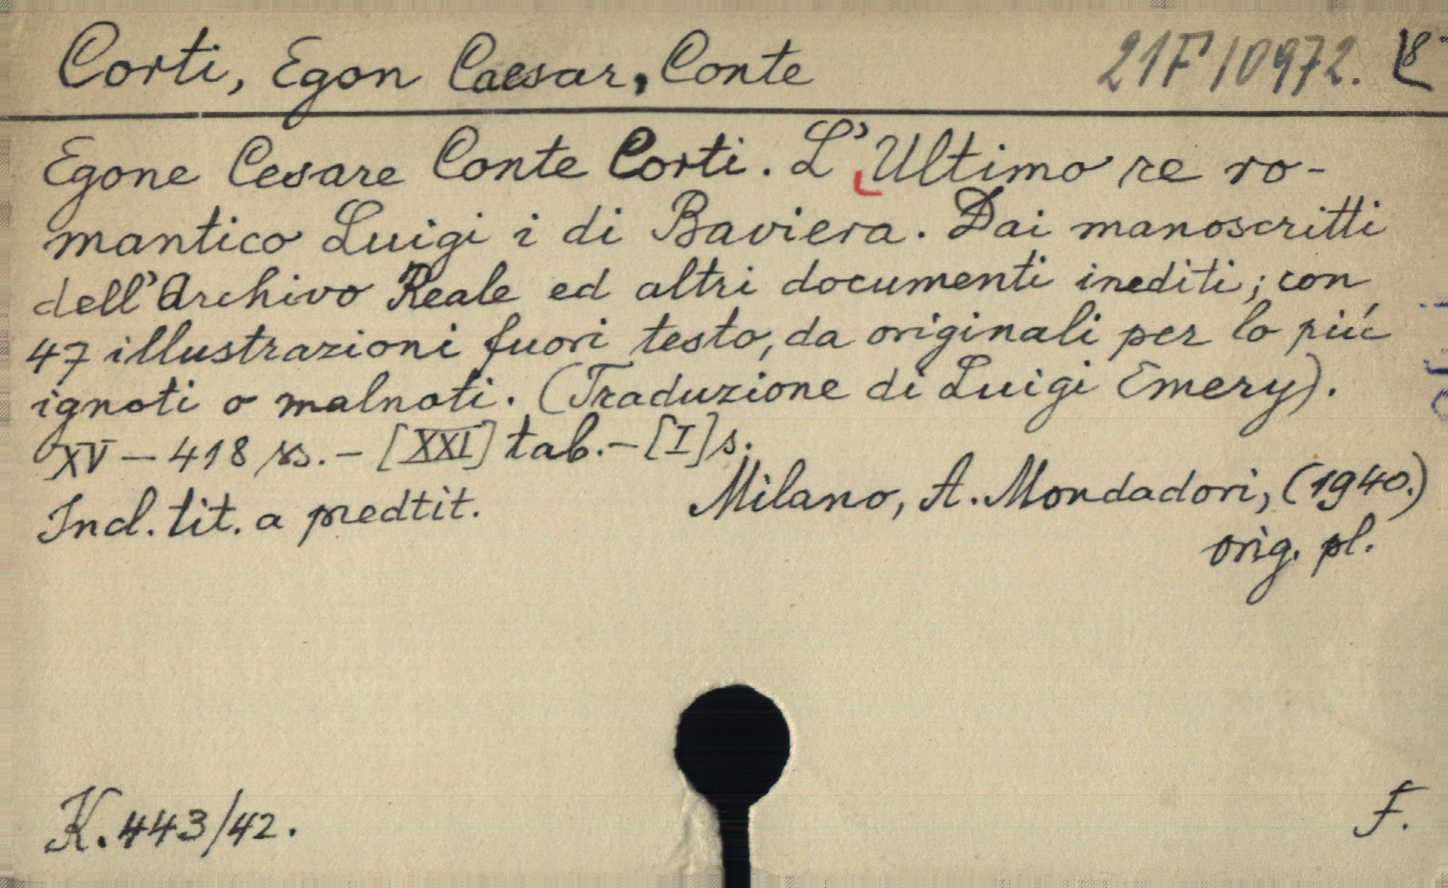 Corti, Egon Caesar, Conte 21F10972. 8°
Egone Cesare Conte Corti. L'Ultimo re ro-
mantico Luigi i di Baviera. Dai manoscritti
dell'Archivo Reale ed altri documenti inediti; con
47 illustrazioni fuori testo, da originali per lo piú
ignoti o malnoti. (Traduzione di Luigi Emery).
XV – 418 ss. – [XXI] tab. – [I] s.
Milano, A. Mondadori, (1940.)
Incl. tit. a predtit.
orig. pl.
K. 443/42.
F.